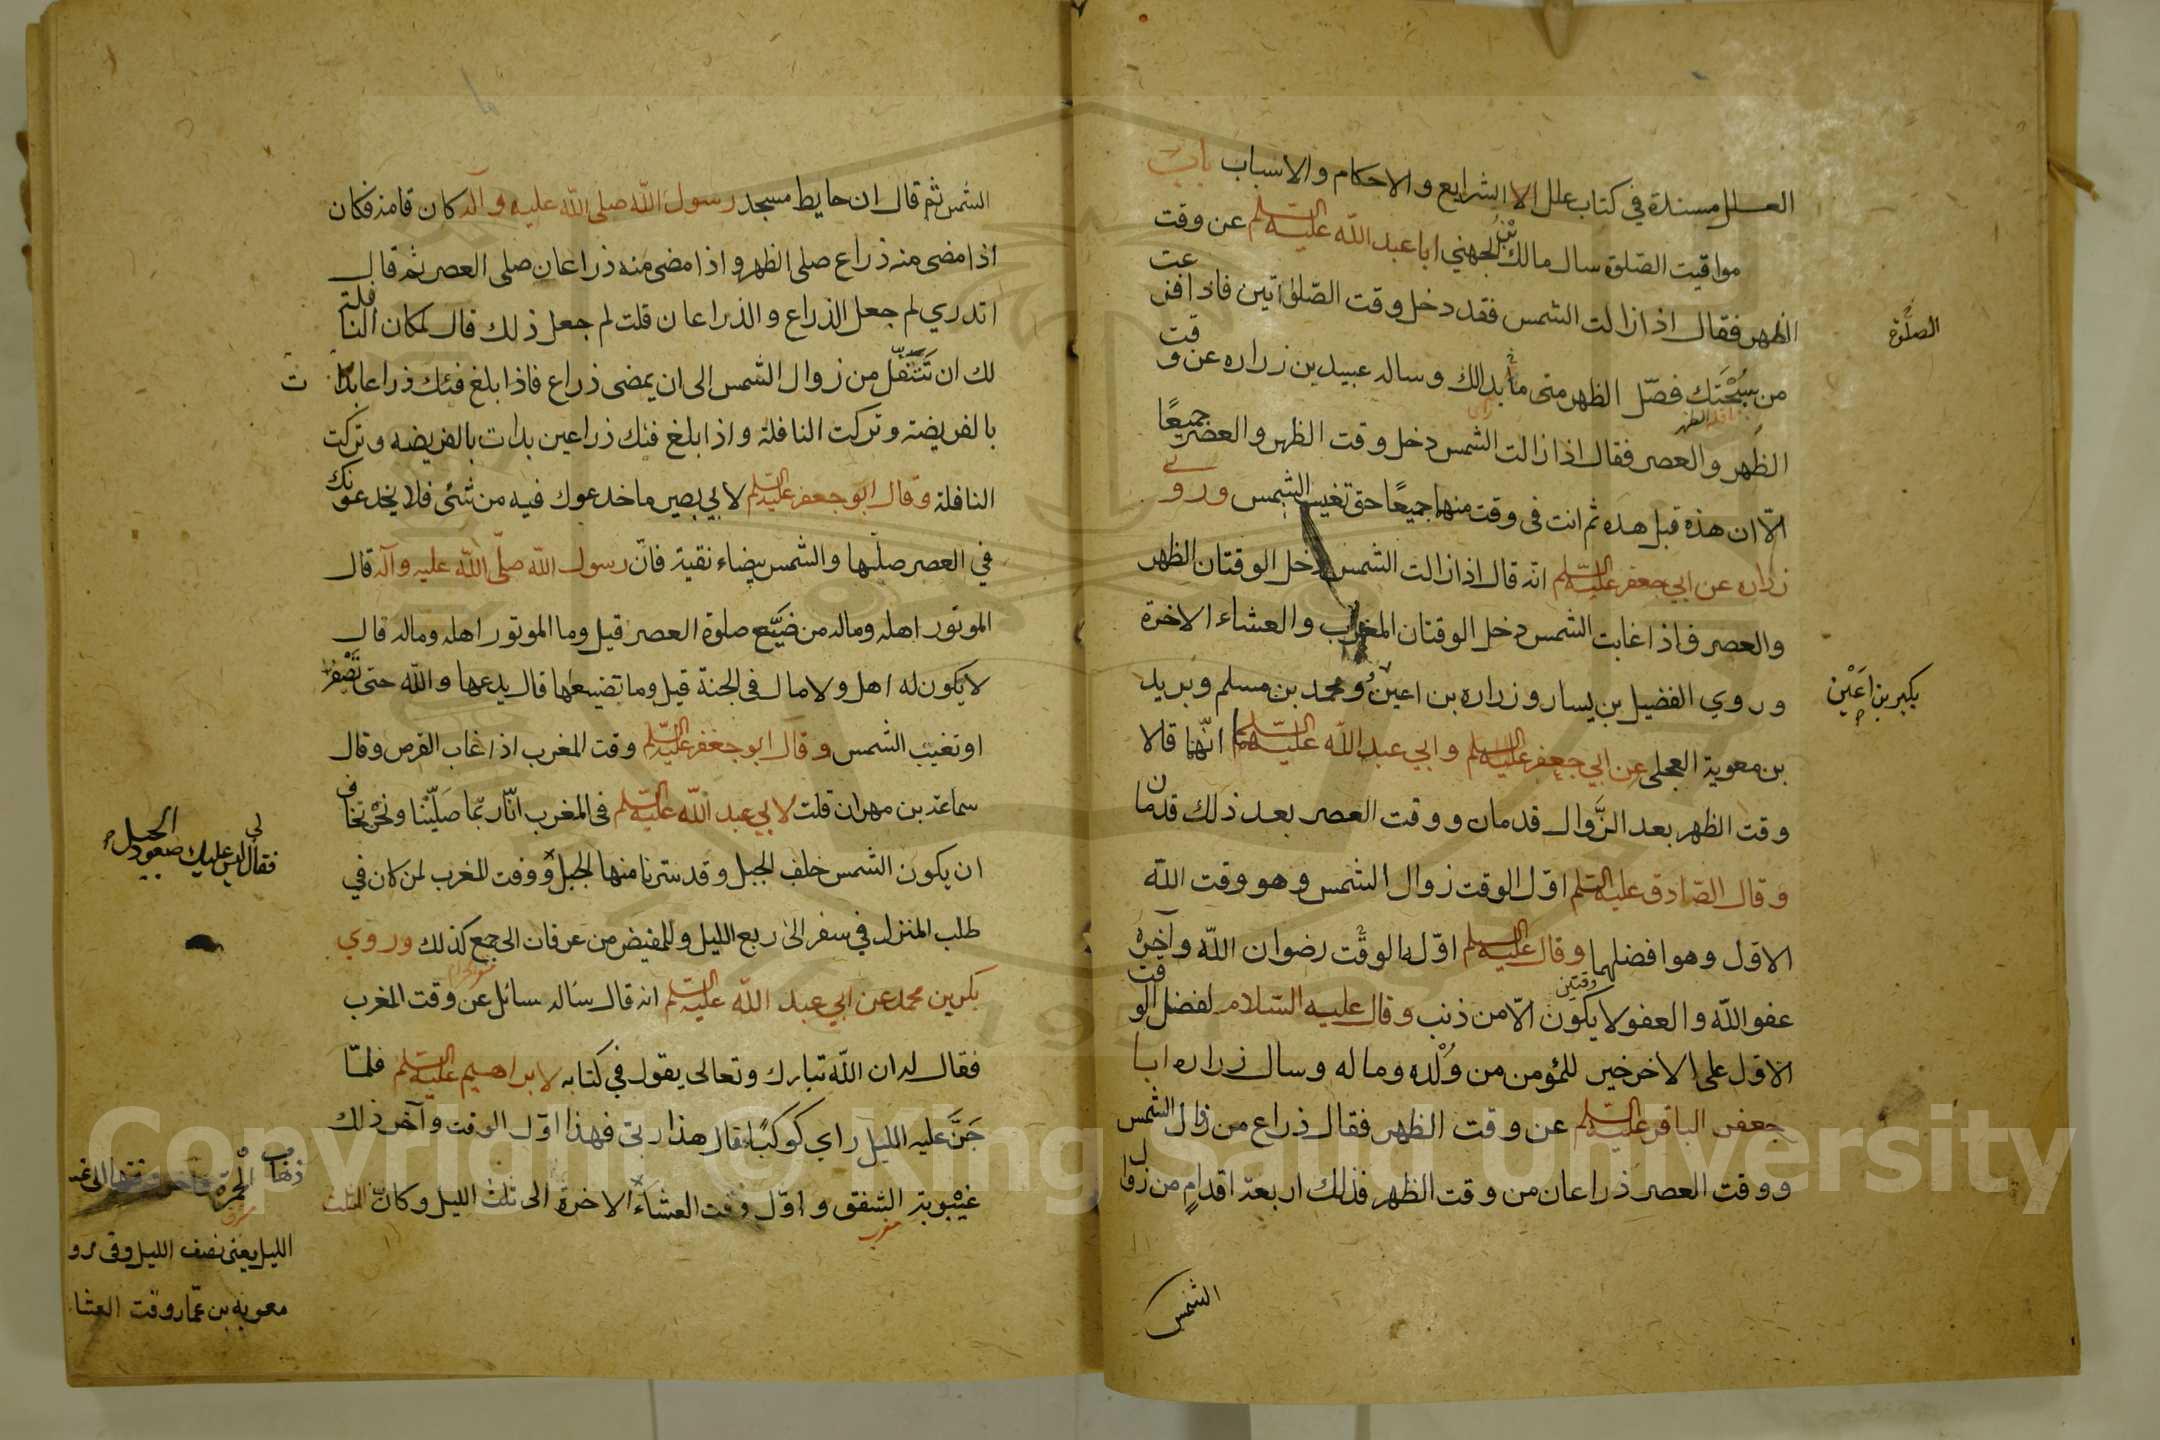 العلل مسندة في كتاب علل الا الشرايع والاحكام والاسباب باب
مواقيت الصّلوة سال مالك الجهني ابا عبد الله عليه السّلم عن وقت
الظهر فقال اذا زالت الشمس فقد دخل وقت الصّلواتين فاذا افرغت
من سُبْحَتَك فصّل الظهر متى ما بدالك وساله عبيد بن زراره عن وقت
الظهر والعصر فقال اذا زالت الشمس دخل وقت الظهر والعصر جميعًا
الّا ان هذه قبل هذه ثم انت في وقت منهما جميعًا حتى تغيب الشمس وروى
زراره عن ابي جعفر عليه السّلم انّه قال اذا زالت الشمس دخل الوقتان الظهر
والعصر فاذا غابت الشمس دخل الوقتان المغرب والعشاء الاخرة
وروي الفضيل بن يسار وزراره بن اعين و محمد بن مسلم وبريد
بن معوية العجلى عن ابي جعفر عليه السلم وابي عبد الله عليهما السّلم انّهما قالا
وقت الظهر بعد الزَّوال قدمان ووقت العصر بعد ذلك قدمان
وقال الصّادق عليه السّلم اوّل الوقت زوال الشمس وهو وقت الله
الاوّل وهو افضلهما وقال عليه السلم اوّل الوقت رضوان الله وآخره
عفو الله والعفو لا يكون الّا من ذنب وقال عليه السّلام لفضل الوقت
الاوّل على الاخر خير للمؤمن من وُلْدِه وماله وسال زراره ابا
جعفر الباقر عليه السّلم عن وقت الظهر فقال ذراع من زوال الشمس
ووقت العصر ذراعان من وقت الظهر فذلك اربعة اقدامٍ من زوال
الشمس
الصَّلوة
بكير بن اَعَيْن
نافلة الظهر
وقتين
الشمس ثم قال ان حايط مسجد رسول الله صلى الله عليه وآله كان قامة فكان
اذا مضى منه ذراع صلى الظهر و اذا مضى منه ذراعان صلى العصر ثم قال
اتدري لم جعل الذراع والذراعان قلت لم جعل ذلك قال لمكان النافلة
لك ان تَتَنَفّل من زوال الشمس الى ان يمضى ذراع فاذا بلغ فئك ذراعا بدات
بالفريضة وتركت النافلة واذا بلغ فئك ذراعين بدات بالفريضه وتركت
النافلة وقال ابو جعفر عليه السّلم لابي بصير ما خدعوك فيه من شئ فلا يخدعونك
في العصر صلّها والشمس بيضاء نقية فانّ رسول الله صلّى الله عليه وآله قال
الموتور اهله وماله من ضيَّع صلوة العصر قيل وما الموتور اهله وماله قال
لا يكون له اهل ولا مال في الجنة قيل وما تضييعها قال يدعها والله حتى تَصْفَر
او تغيب الشمس وقال ابو جعفر عليه السّلم وقت المغرب اذا غاب القرص وقال
سماعة بن مهران قلت لابي عبد الله عليه السّلم في المغرب انّا ربّما صَلّيْنا ونَحْن نخاف
ان يكون الشمس خلف الجبل وقد سترنا منها الجبل و وقت المغرب لمن كان في
طلب المنزل في سفر الى ربع الليل وللمفيض من عرفات الى جمع كذلك وروي
بكر بن محمد عن ابي عبد الله عليه السّلم انه قال ساله سائل عن وقت المغرب
فقال له ان الله تبارك وتعالى يقول في كتابه لابراهيم عليه السّلم فلمّا
جَنَّ عليه الليل راي كوكبًا قال هذا ربى فهذا اوّل الوقت وآخر ذلك
غيْبُوبة الشفق و اوّل وقت العشاء الاخرة الى ثلث الليل وكانّ الثلث
ت
فقال لي ليس عليك صعود الجبل
ذهاب الحمرة
الليل يعنى نصف الليل وفى رو
معويه بن عمّار وقت العشا
مغرب
Copyright © King Saud University